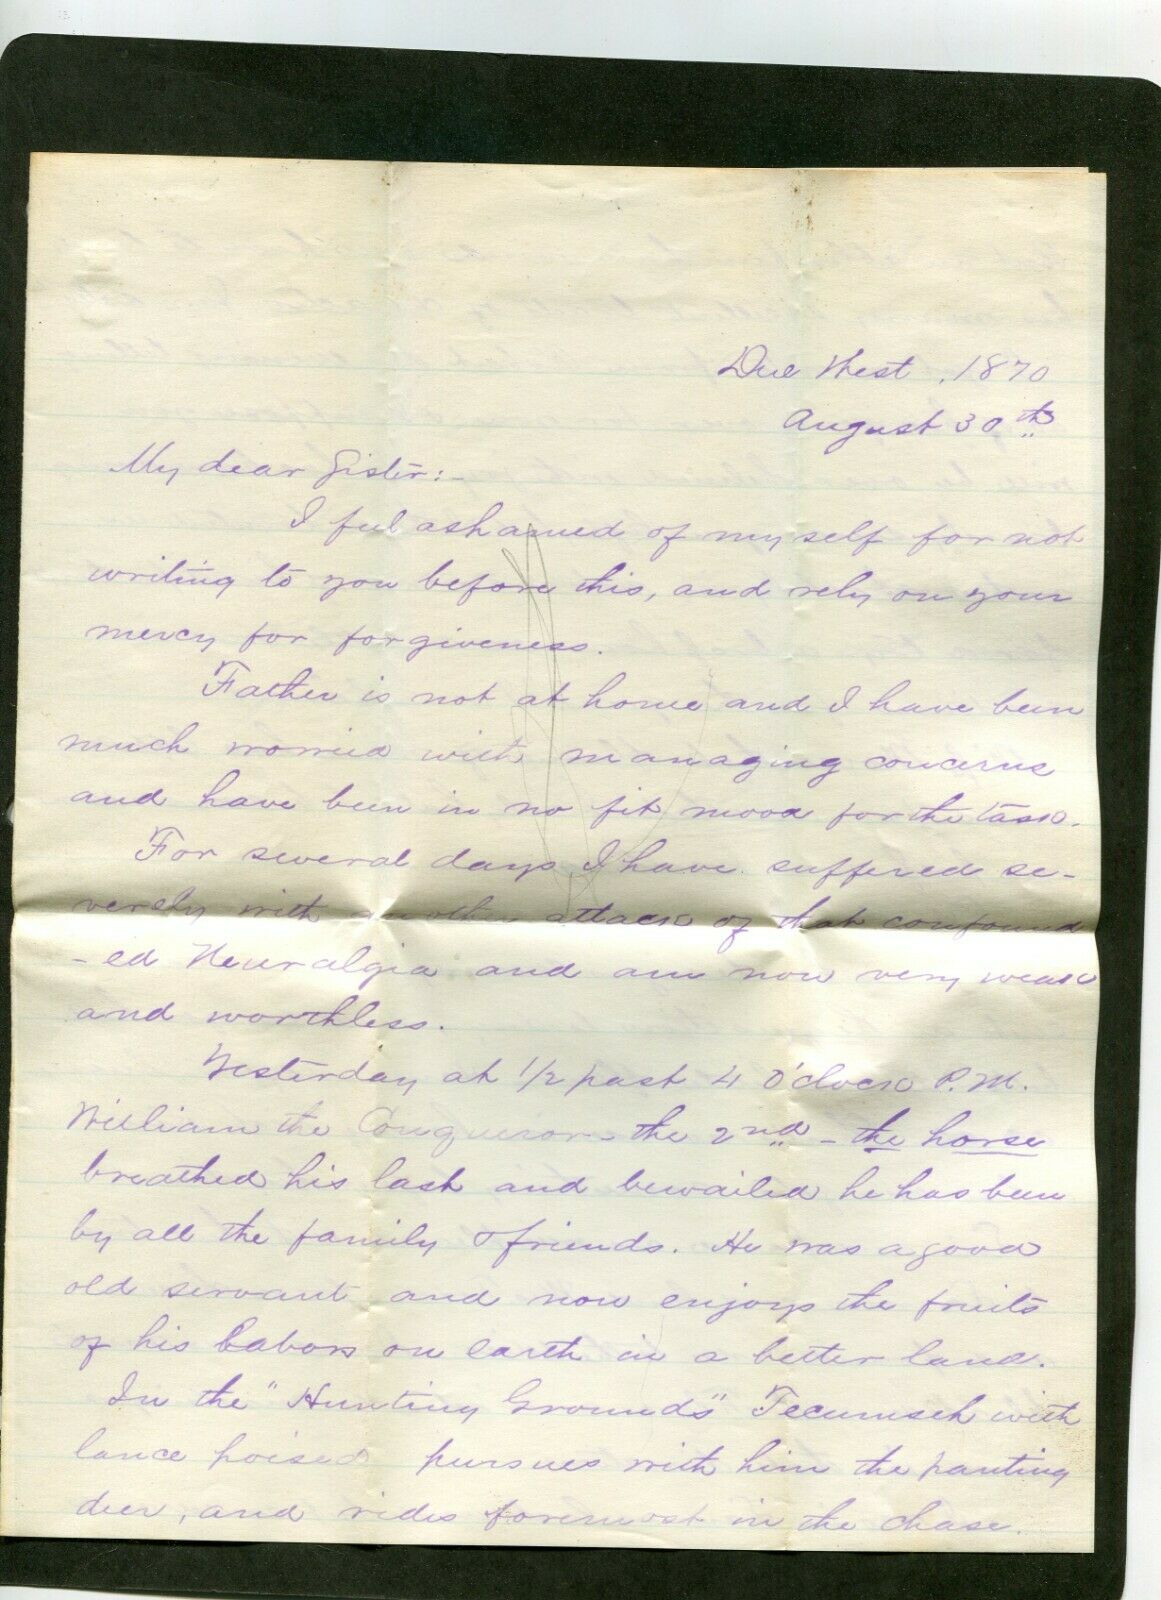 Due West, 1870
August 30th
My dear Sister:-
I feel ashamed of myself for not
writing to you before this, and rely on your
mercy for forgiveness.
Father is not at home and I have been
much worried with managing concerns
and have been in no fit mood for the task.
For several days I have suffered se-
verely with another attack of that confound
-ed Neuralgia and am now very weak
and worthless.
Yesterday at 1/2 past 4 O'clock P.M.
William the Conqueror - the 2nd - the horse
breathed his last and bewailed he has been
by all the family & friends. He was a good
old servant and now enjoys the fruits
of his labors on earth in a better land.
In the "Hunting Grounds" Tecumseh with
lance poised pursues with him the panting
deer, and rides foremost in the chase.